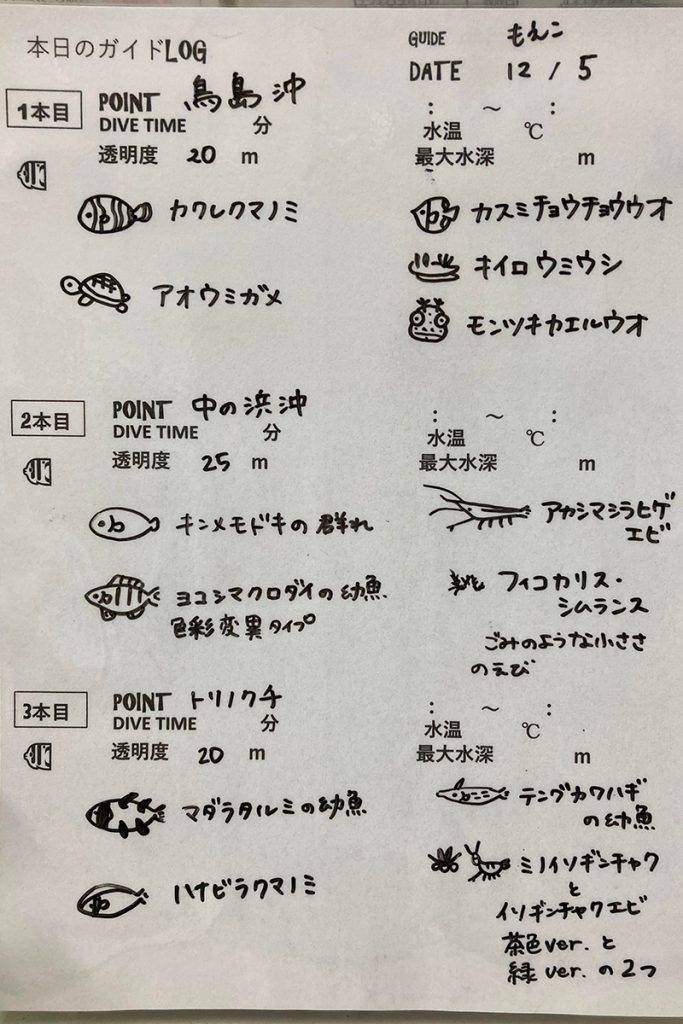 本日のガイドLOG
GUIDE もえこ
DATE 12 / 5
1本目
POINT 鳥島沖
DIVE TIME 分
透明度 20 m
: ～ :
水温 ℃
最大水深 m
カクレクマノミ
アオウミガメ
カスミチョウチョウウオ
キイロウミウシ
モンツキカエルウオ
2本目
POINT 中の浜沖
DIVE TIME 分
透明度 25 m
: ～ :
水温 ℃
最大水深 m
キンメモドキの群れ
ヨコシマクロダイの幼魚
色彩変異タイプ
アカシマシラヒゲ
エビ
フィコカリス・
シムランス
ごみのような小ささ
のえび
3本目
POINT トリノクチ
DIVE TIME 分
透明度 20 m
: ～ :
水温 ℃
最大水深 m
マダラタルミの幼魚
ハナビラクマノミ
テングカワハギ
の幼魚
ミノイソギンチャク
と
イソギンチャクエビ
茶色ver. と
緑ver. の2つ